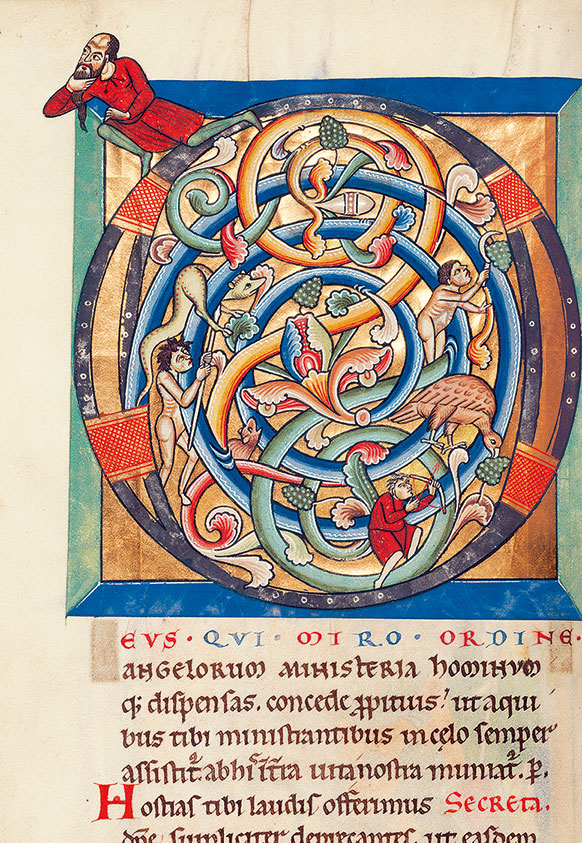 D
EVS · QVI · MIRO · ORDINE ·
ANGELORUM MINISTERIA hOMINUM
q; dispensas. concede ꝓpitius! ut a qui
bus tibi ministrantibus in celo semper
assistit᷑ ab his ī t̄ra uita nostra muniat᷑. P.
Hostias tibi laudis offerimus SECRETA.
dn̄e suppliciter deprecantes. ut easdem